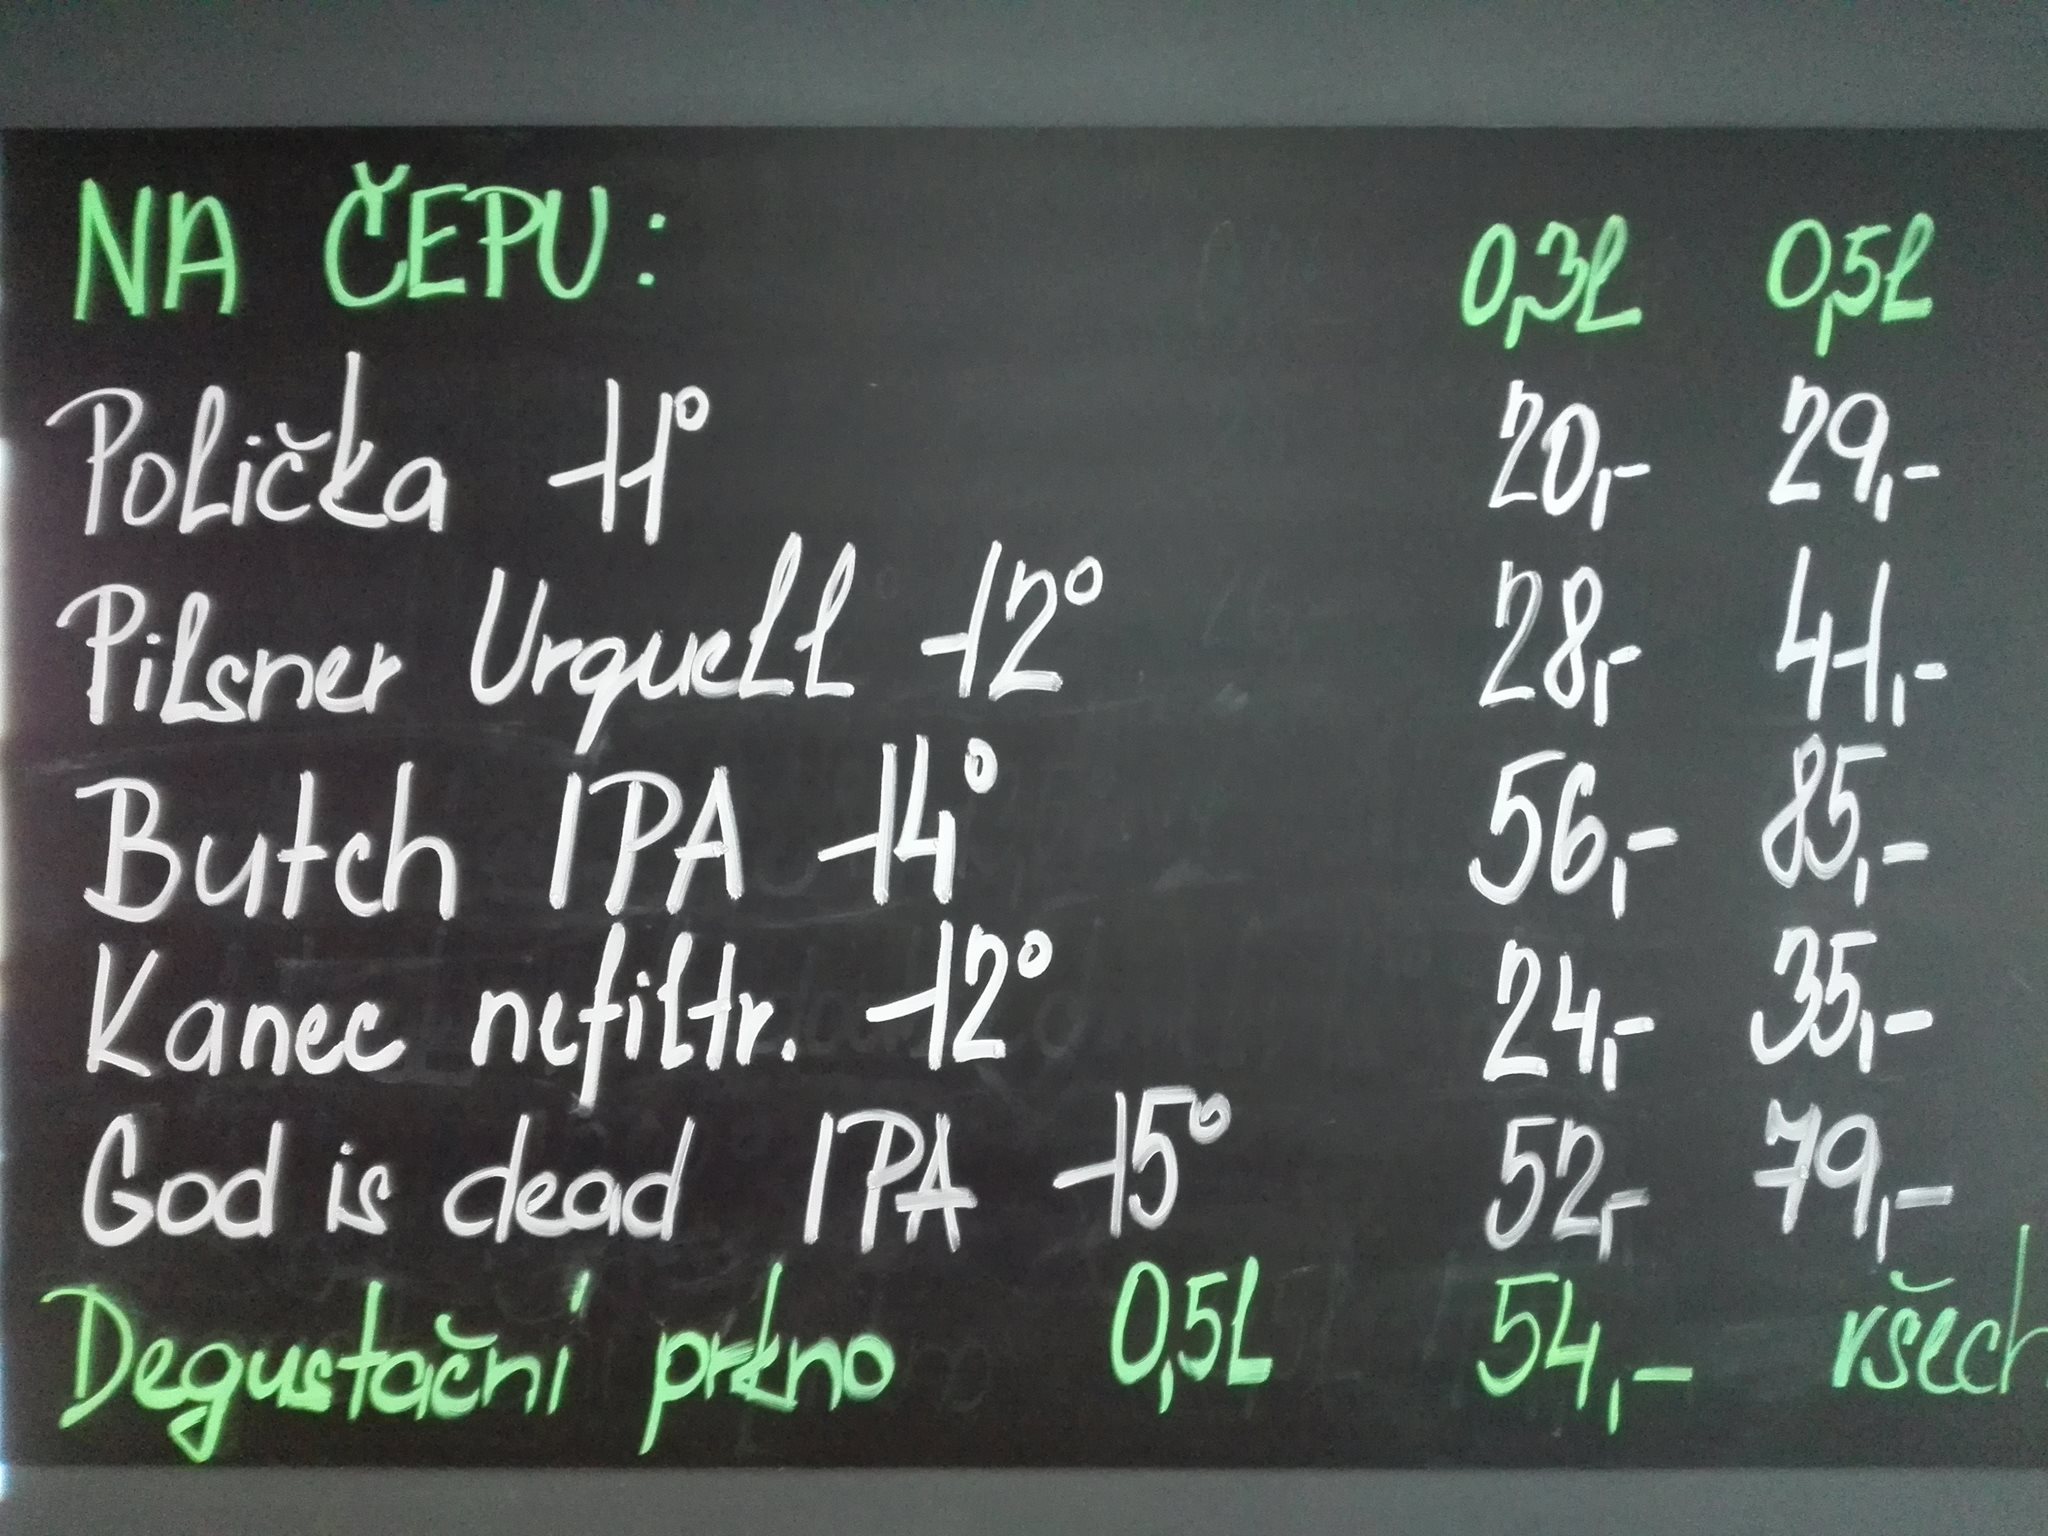 NA ČEPU: 0,3L 0,5L
Polička 11° 20,- 29,-
Pilsner Urquell 12° 28,- 41,-
Butch IPA 14° 56,- 85,-
Kanec nefiltr. 12° 24,- 35,-
God is dead IPA 15° 52,- 79,-
Degustační prkno 0,5L 54,- všech